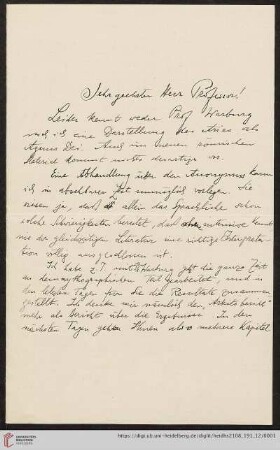 Sehr geehrter Herr Professor!
Leider kennt weder Prof. Warburg
noch ich eine Darstellung des Aries als
Agnus Dei. Auch im neuen römischen
Material kommt nichts derartiges vor.
Eine Abhandlung über den Anonymus kann
ich in absehbarer Zeit unmöglich vorlegen. Sie
wissen ja, dass allein das Sprachliche schon
solche Schwierigkeiten bereitet, dass ohne intensive Kennt-
nis der gleichzeitigen Literatur eine richtige Interpreta-
tion völlig ausgeschlossen ist.
Ich habe z.T. die ganze Zeit
an dem gearbeitet, und in
den letzten Tagen für die die Resultate zusammen
gestellt. Ich denke mir nämlich den
mehr als Bericht über die Ergebnisse. In den
nächsten Tagen gehen Ihnen also mehrere Kapitel
https://digi.ub.uni-heidelberg.de/diglit/heidhs2108_191_12/0001